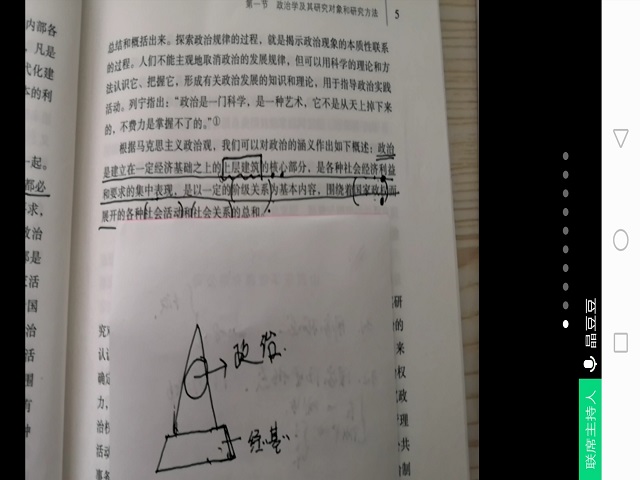 第一节 政治学及其研究对象和研究方法 5
总结和概括出来。探索政治规律的过程，就是揭示政治现象的本质性联系
的过程。人们不能主观地取消政治的发展规律，但可以用科学的理论和方
法认识它、把握它，形成有关政治发展的知识和理论，用于指导政治实践
活动。列宁指出：“政治是一门科学，是一种艺术，它不是从天上掉下来
的，不费力是掌握不了的。”①
根据马克思主义政治观，我们可以对政治的涵义作出如下概述：政治
是建立在一定经济基础之上的上层建筑的核心部分，是各种社会经济利益
和要求的集中表现，是以一定的阶级关系为基本内容，围绕着国家政权而
展开的各种社会活动和社会关系的总和
内部各
凡是
代化建
本的利
一起。
都必
要求，
政治
活
国
治
活
有
种
政治
经.基.
研
的
来
权
政
理
共
制
究
认
确定
力，
治权
活动
事务
晶豆豆
联席主持人